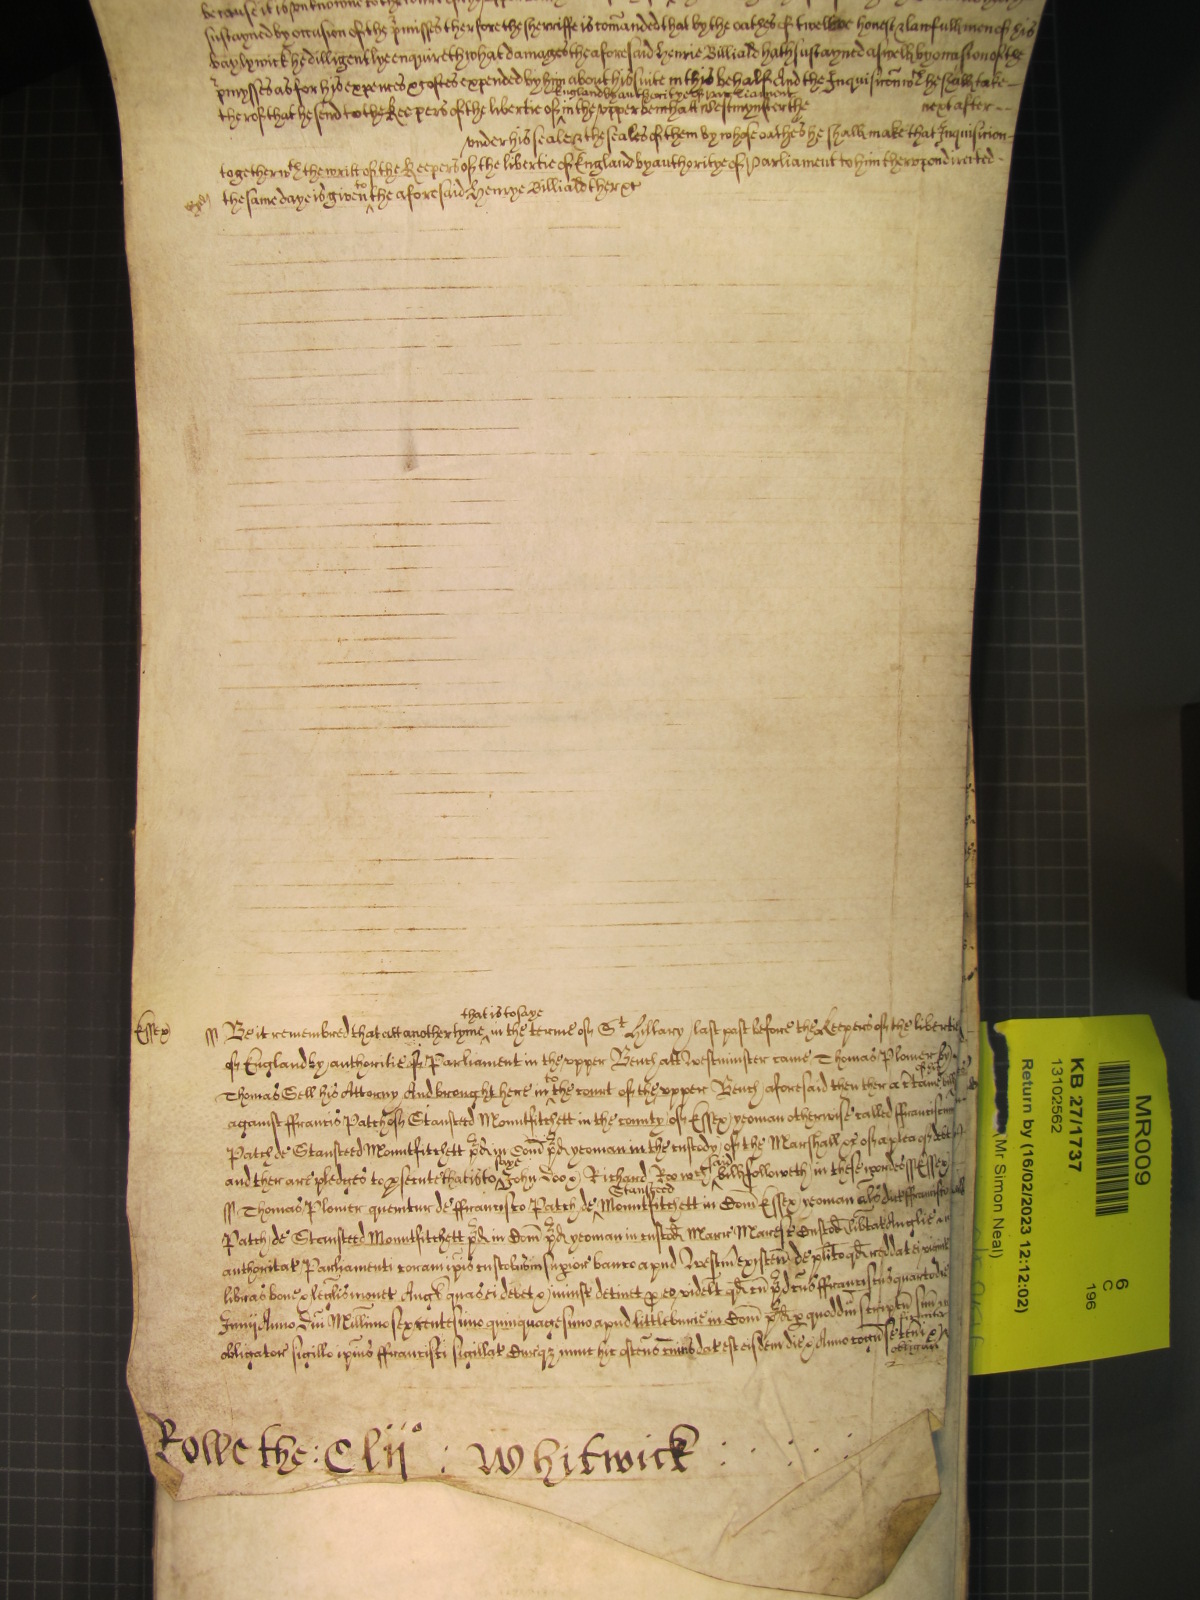 because it is unknowne to the
sustayned by occasion of the p̃misses therfore the sherriffe is com̃anded that by the oathes of twelve honest & lawfull men of his
baylywick he dilligentlye enquireth what damages the aforesaid Henrie Billiald hath sustayned aswell by occasion of the
p̃mysses as for his expences & costes expended by him about his suite in this behalf And the Inquisicõn wᶜʰ he shall take
England by authoritye of Parliament
therof that he send to the Keepers of the libertie of in the upper bench att Westmynster the next after
under his seale & the seales of them by whose oathes he shall make that Inquisicion
together wᵗʰ the writt of the Keepers of the libertie of England by authoritye of Parliament to him therupon directed
to
the same daye is given the aforesaid Henrye Billiald ther &c
that is to saye
Essex ss Be it remembred that att another tyme in the terme of Sᵗ Hillary last past before the Keepers of the libertie
of England by authoritie of Parliament in the upper Bench att Westminster came Thomas Plomer by
to
Thomas Sell his Attorny And brought here in the court of the upper Bench aforesaid then ther a c̃taine bill
against ffrancis Patch of Stansteed Mountfitchett in the county of Essex yeoman otherwise called ffranciscum
Patch de Stansteed Mountfitchett p̃d in Com̃ p̃d yeoman in the custody of the Marshall &c of a plea of debt
saye said
and ther are pledges to p̱secute that is to John Doo & Richard Roo wᶜʰ bill followeth in these wordes ss Essex
Stansteed
ss Thomas Plomer queritur de ffrancisco Patch de Mountfitchett in Com̃ Essex yeoman als dict ffrancisco
Patch de Stansteed Mountfitchett p̃d in Com̃ p̃d yeoman in custod Marr Maresc Custod lib̃tat Anglie
authoritat Parliamenti coram ip̃is custodibus in superior banco apud Westm̃ existen̄ de pl̃ito qd̃ reddat ei
libras bone & legalis monet Angl quas ei debet & iniuste detinet p̱ eo videlt qd̃ cũ p̃d ffranciscus quarto die
Junij Anno Dñi Millimo sexcentesimo quinquagesimo apud Littleburie in Com̃ p̃d p̱ quoddam scriptũ suũ
obligator sigillo ip̃ius ffrancisci sigillat Curieq̃ nunc hic ostens cuius dat est eisdem die & Anno
Rowe the : Clijº : Whitwick : . : .
MR009
KB 27/1737
13102562
Return by (16/02/2023 12:12:02)
(Mr Simon Neal)
6
C
196